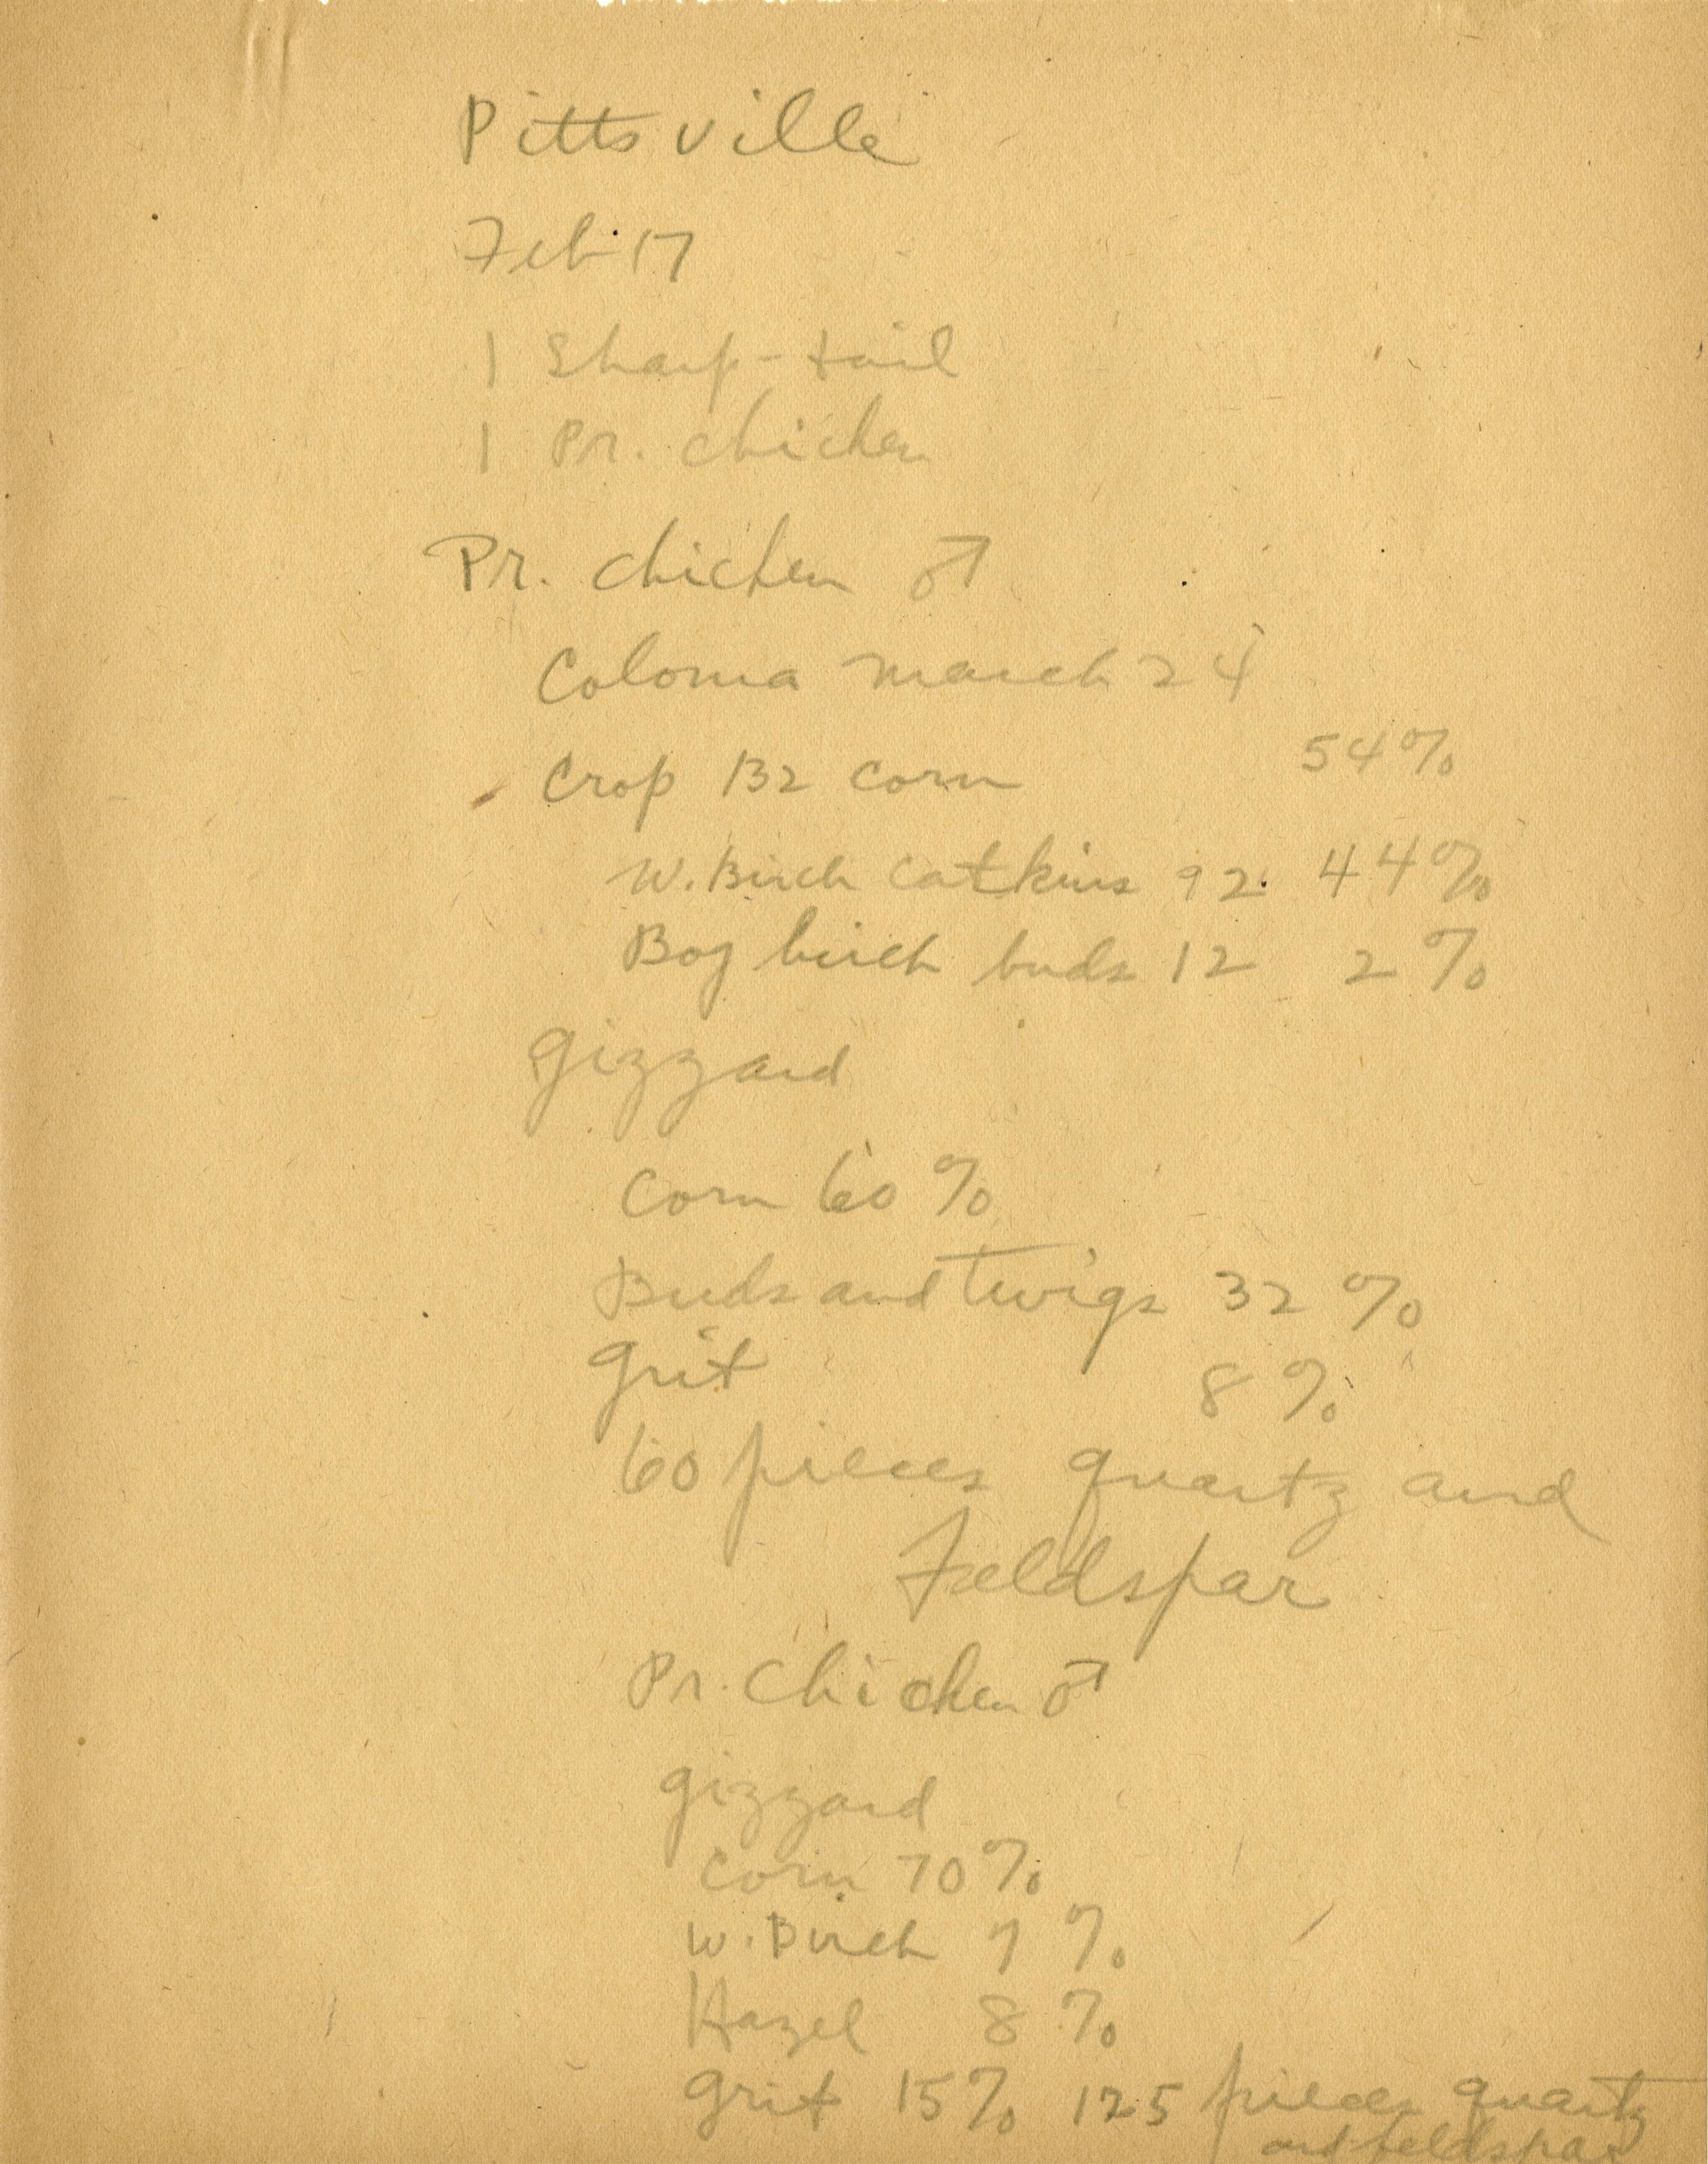 Pittsville
Feb 17
1 Sharp-tail
1 Pr. chicken
Pr. chicken ♂
Coloma March 24
Crop 132 corn 54%
W. Birch catkins 92. 44%
Bog birch buds 12 2%
gizzard
corn 60%
Buds and twigs 32%
grit 8%
60 pieces quartz and
Feldspar
Pr. Chicken ♂
gizzard
corn 70%
W. Birch 7%
Hazel 8%
grit 15% 125 pieces quartz
and feldspar